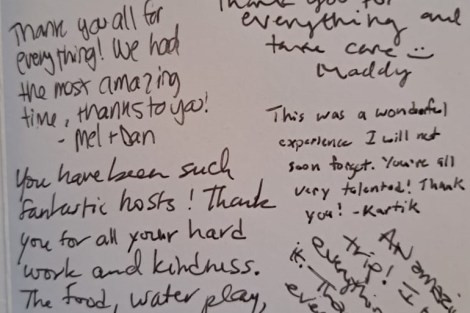 Thank you all for
everything! We had
the most amazing
time, thanks to you!
- Mel + Dan
You have been such
fantastic hosts! Thank
you for all your hard
work and kindness.
The food, water play,
Thank you for
everything and
take care :)
Maddy
This was a wonderful
experience I will not
soon forget. You're all
very talented! Thank
you! - Kartik
AN
trip! I
everything
it.